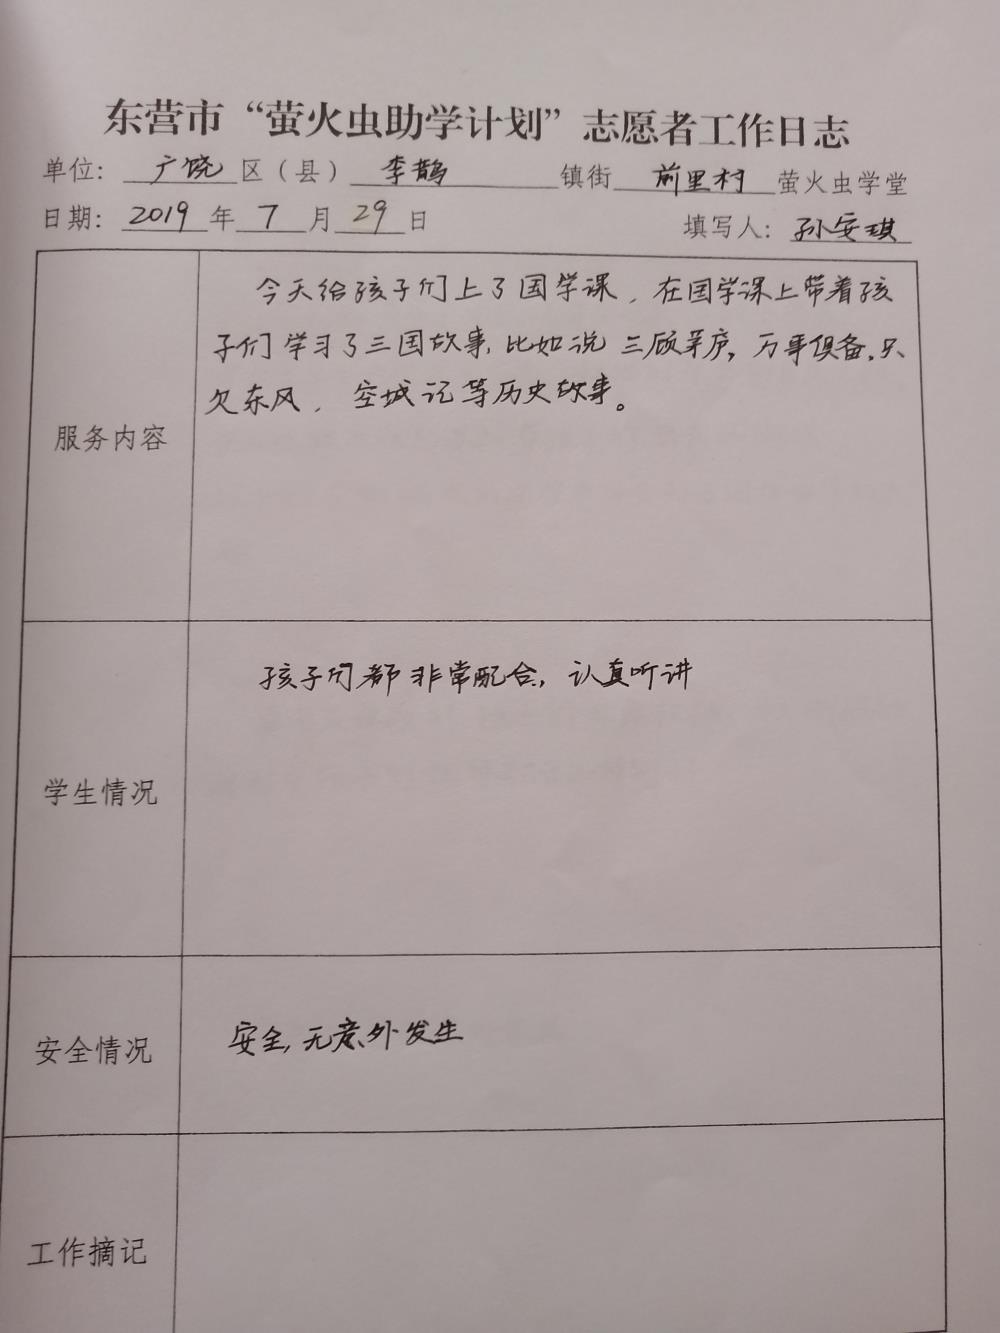 东营市“萤火虫助学计划”志愿者工作日志
单位：广饶区（县）李鹊镇街前里村萤火虫学堂
日期：2019年7月29日 填写人：孙安琪
服务内容
今天给孩子们上了国学课，在国学课上带着孩
子们学习了三国故事，比如说三顾茅庐，万事俱备，只
欠东风，空城记等历史故事。
学生情况
孩子们都非常配合，认真听讲
安全情况
安全，无意外发生
工作摘记